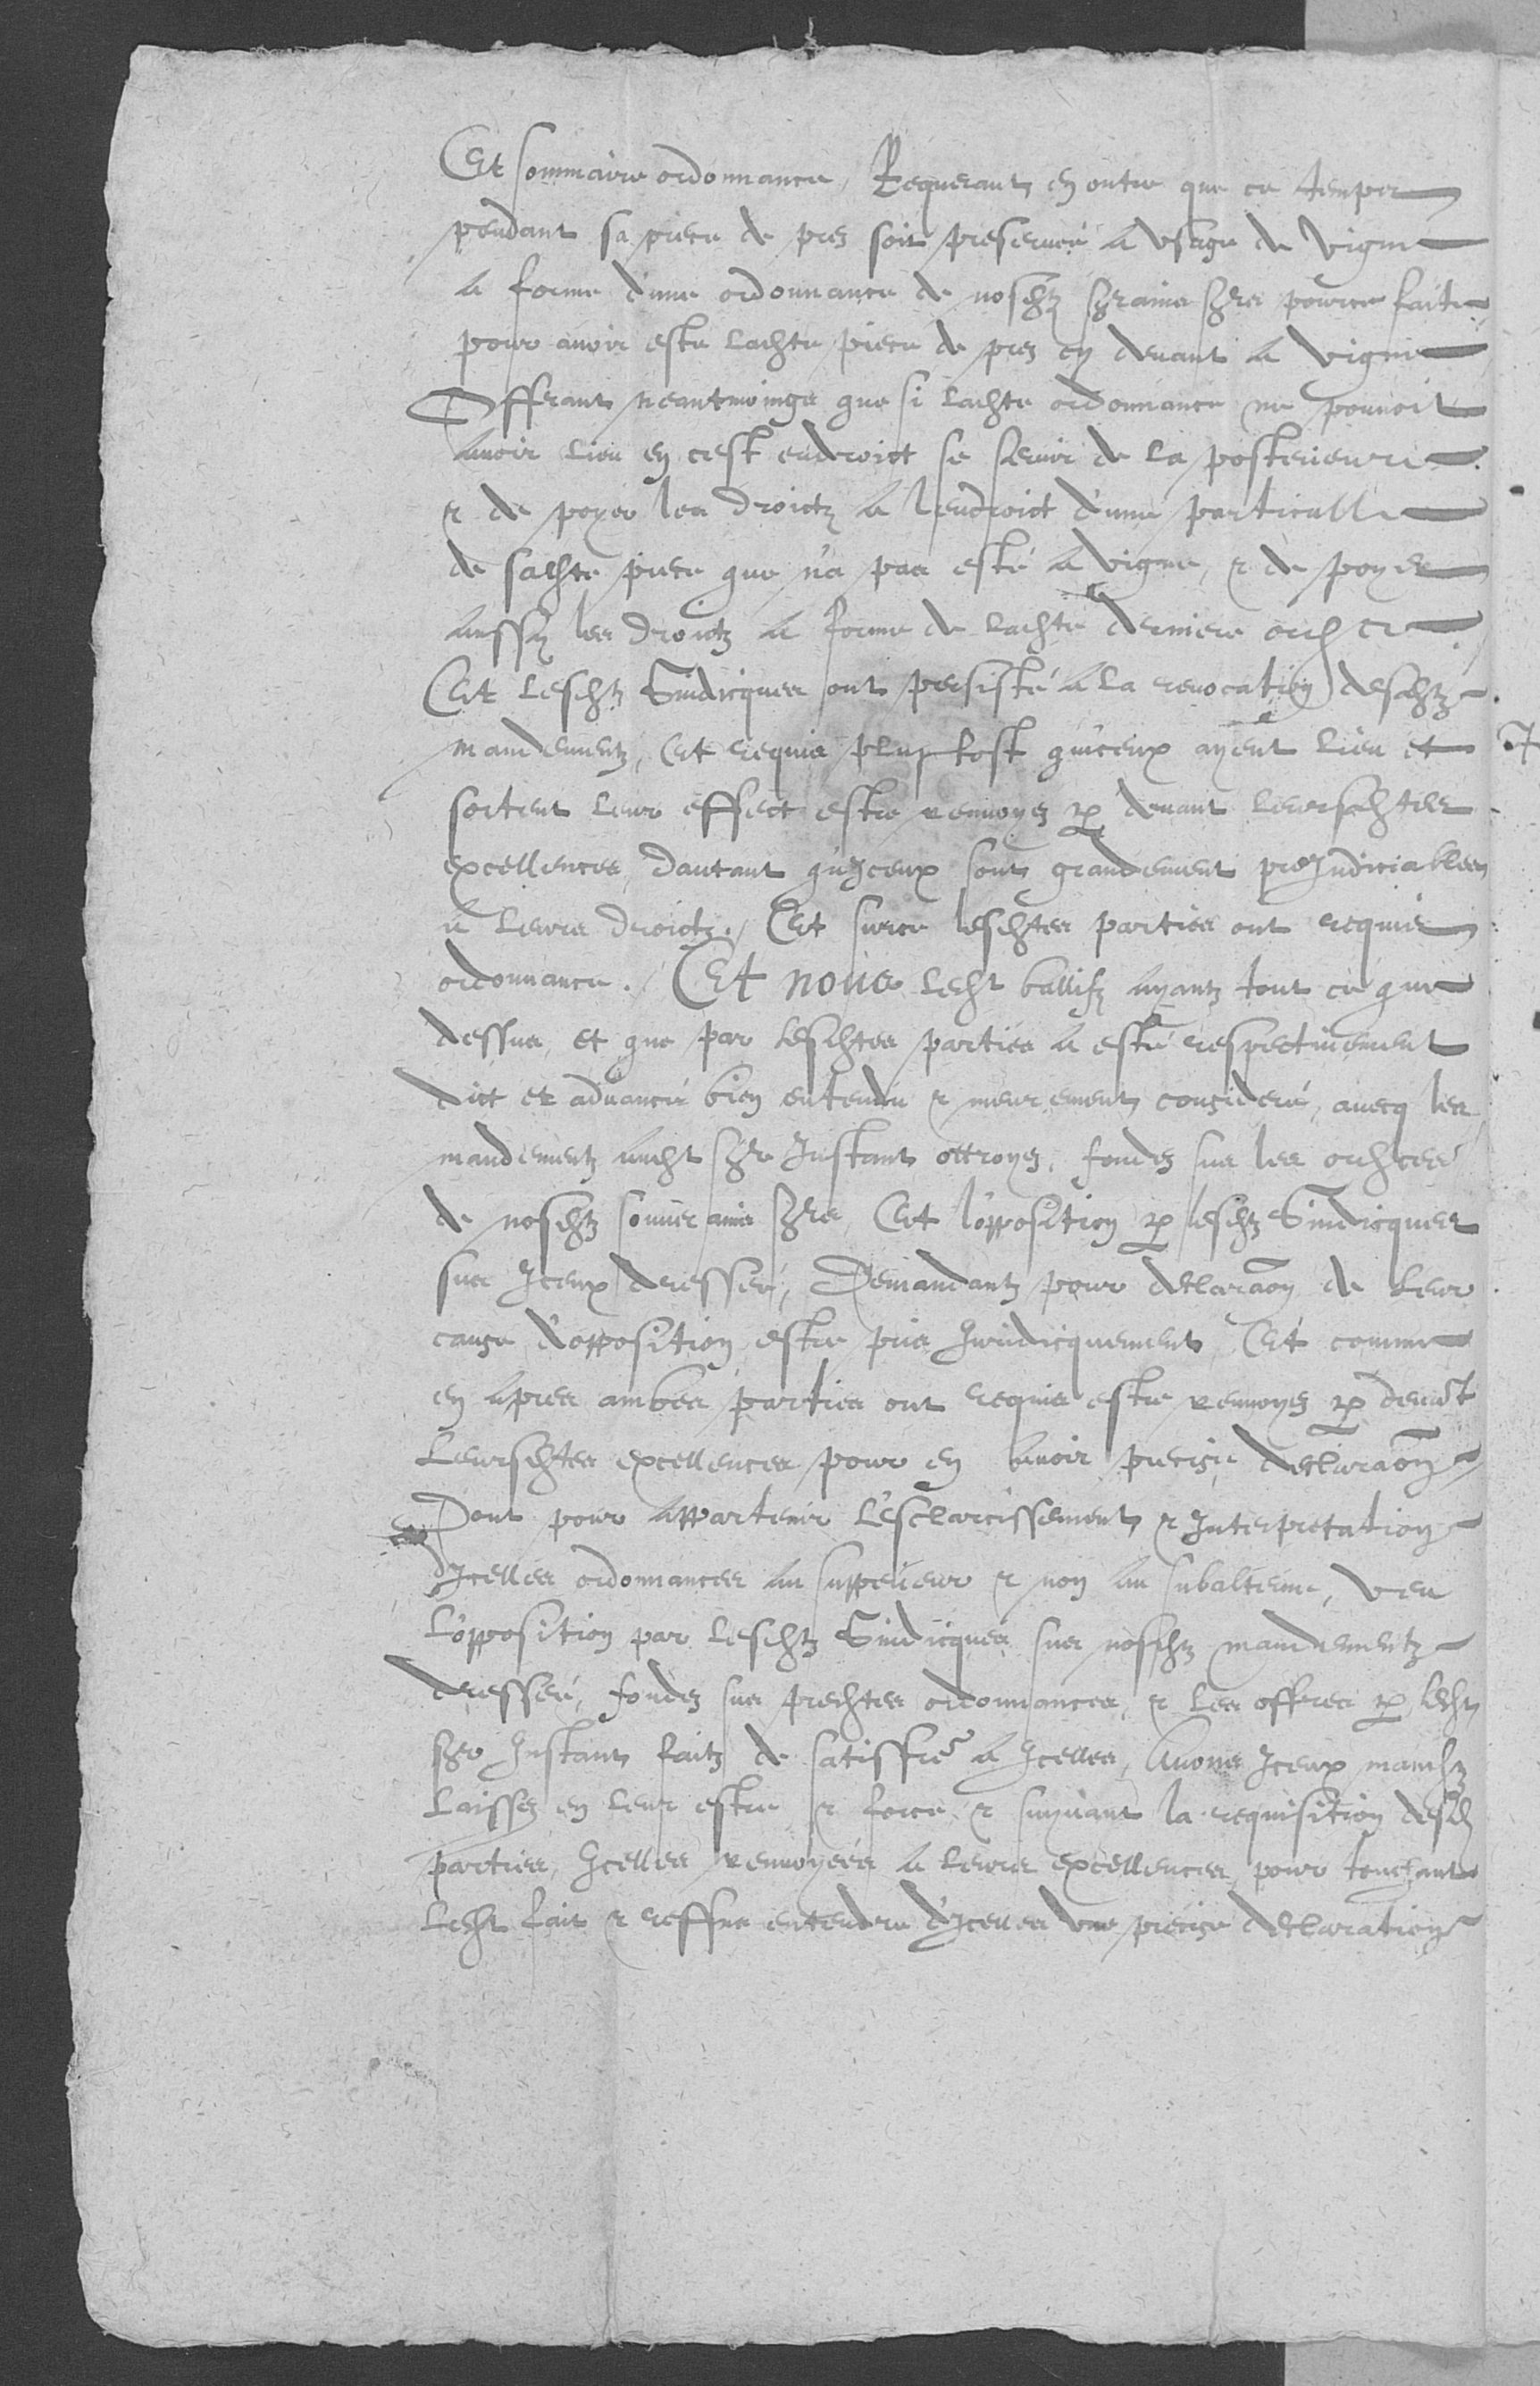 Et sommaire ordonnance, Requerant en outre que ce temps
pendant sa piece de prez soit preservee a usage de vigne
a forme d'une ordonnance de nosdtz sgrains sgrs pource faite
pour avoir este ladte piece de prez cy devant a vigne
Offrant neantmoings que si ladte ordonnance ne pouvoit
avoir lieu en cest endroict se servir de la posterieure
& de poyer les droictz a lendroict d'une particulle
de sadte piece que n'a pas esté a vigne, & de poyer
aussy les droictz a forme de ladte derniere ordce
Et lesdtz Sindicques ont persisté a la revocation desdtz
mandementz, Et requis plustost qu'iceux ayent lieu et
sortent leur effect estre renvoyez p devant leursdtes
excellences, dautant qu'Iceux sont grandement preJudiciables
a leurs droictz. Et surce lesdtes parties ont requis
ordonnance. Et nous ledt ballifz ayantz tout ce que
dessus, et que par lesdtes parties a esté respectivement
dict et advancé bien entendu & meurement consideré, avecq les
mandementz audt sgr Instant ottroyez, fondez sus les ordces
de nosdtz souverains sgrs, Et l'opposition p lesdtz Sindicques
sus Iceux dressée, Demandantz pour declaraon de leur
cause d'opposition estre pris Juridicquement, Et comme
en apres ambes parties ont requis estre renvoyez p devat
Leursdtes excellences pour en avoir precise declaraon
Dont pour appartenir l'esclarcissement & Interpretation
d'Icelles ordonnances au supperieur & non au subalterne, veu
L'opposition par lesdtz Sindicques sus nosdtz mandementz
dressée, fondez sus predtes ordonnances, & les offres p ledt
sgr Instant faitz de satisfre a Icelles, Avons Iceux mandtz
Laissez en leur estre & force, & suyvant la requisition desd
parties, Icelles renvoyées a leurs excellences, pour touchant
Ledt fait & reffus entendre d'Icelles une precise declaration